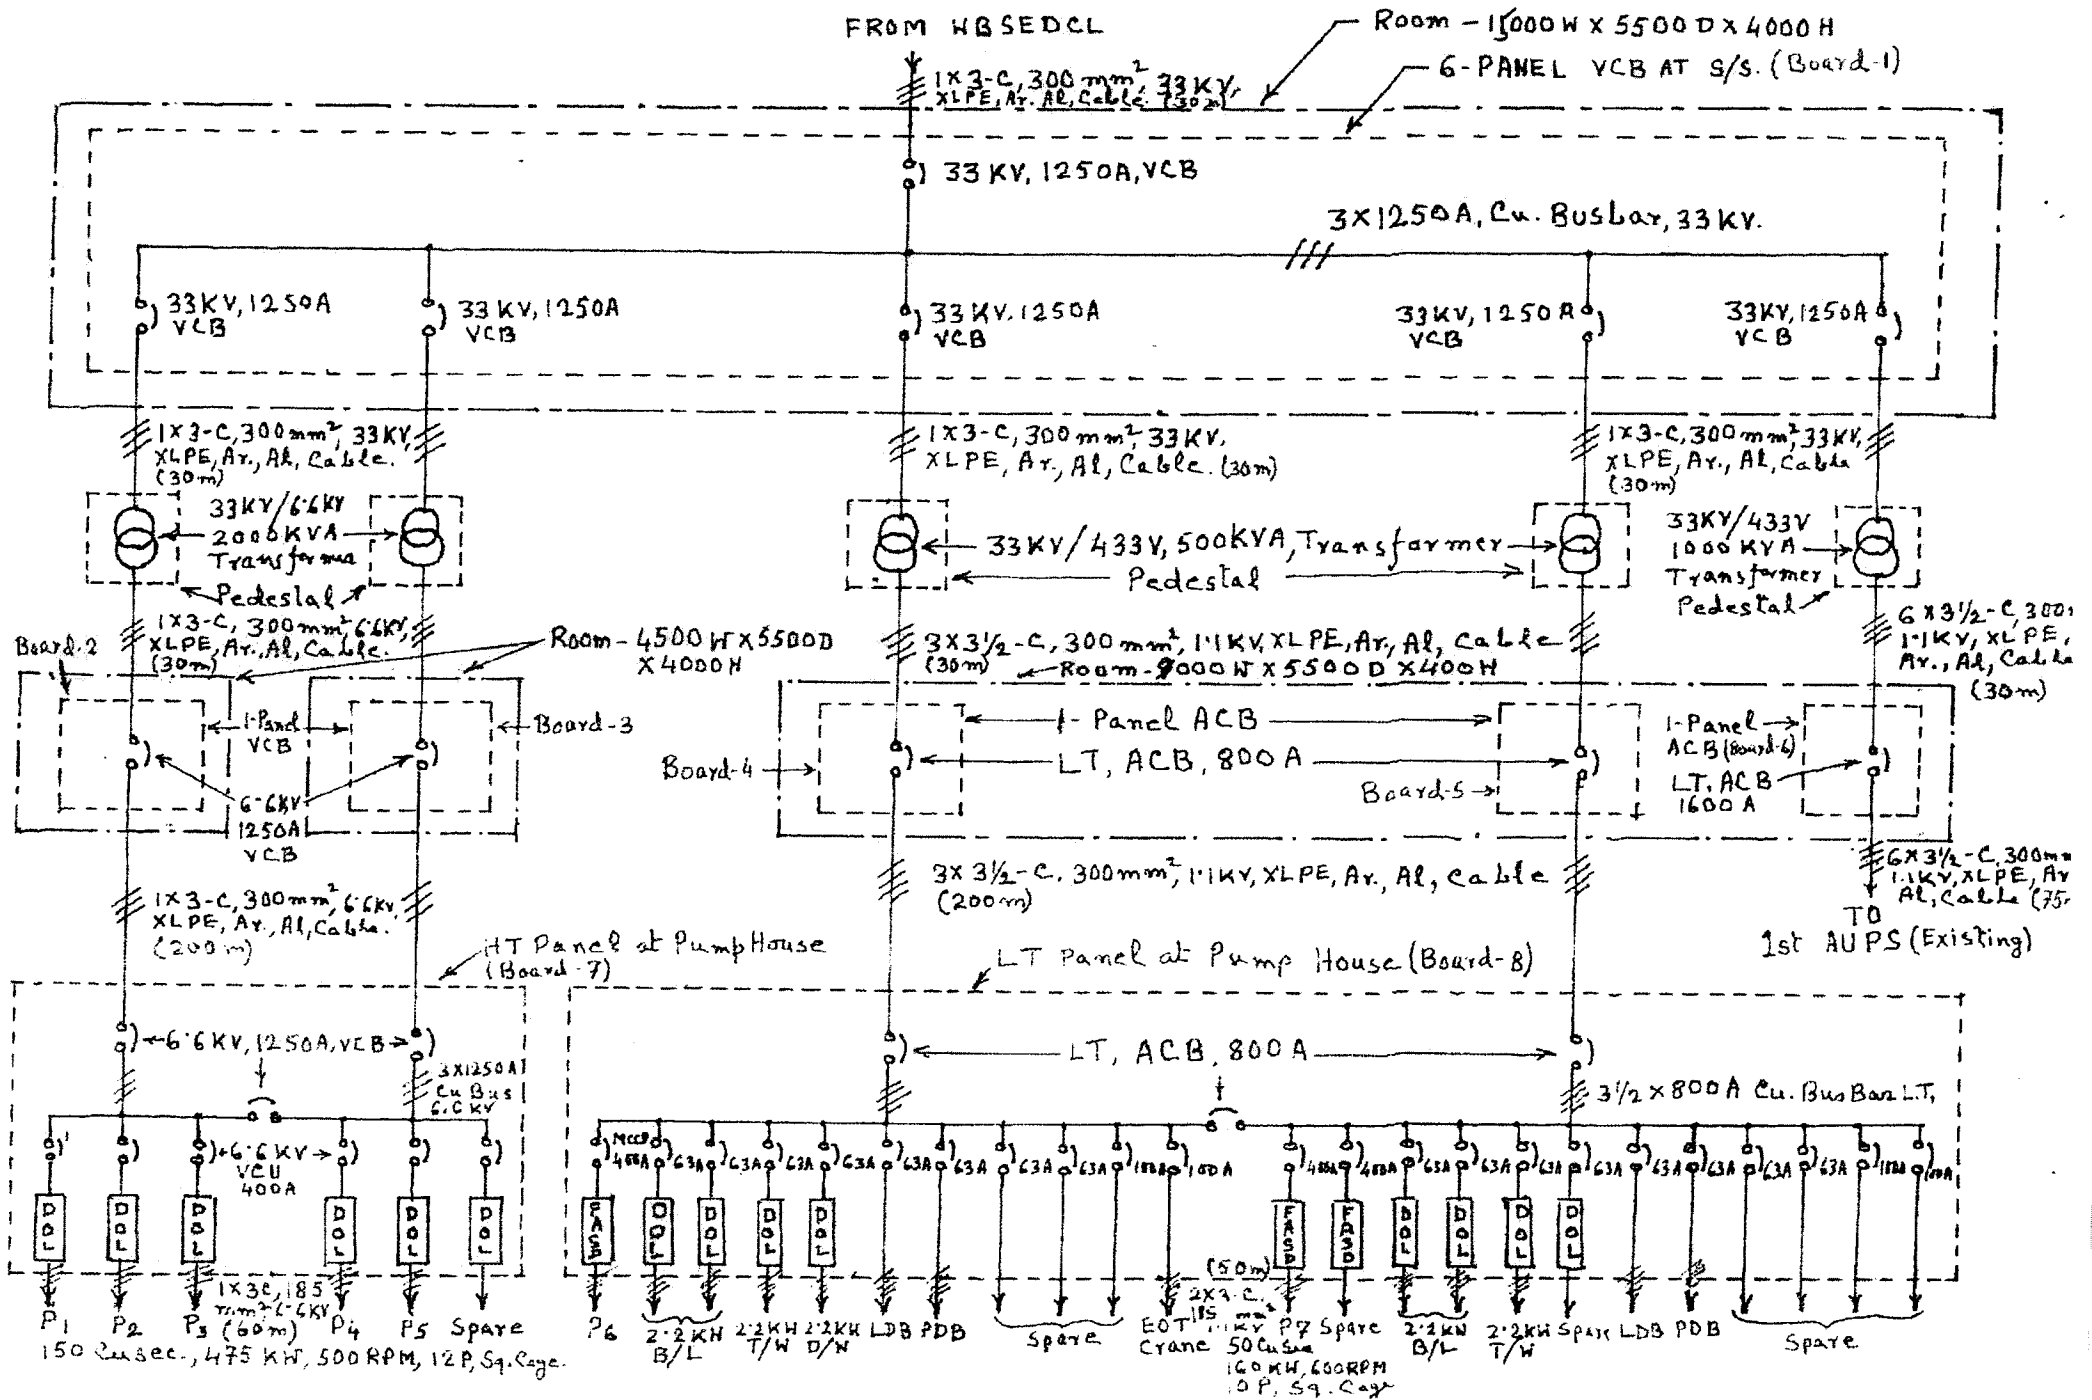 FROM WBSEDCL
Room - 15000 W X 5500 D X 4000 H
6-PANEL VCB AT S/S. (Board-1)
1X3-C, 300 mm², 33KV,
XLPE, Ar. Al, Cable. (30m)
33 KV, 1250A, VCB
3X1250A, Cu. Busbar, 33 KV.
33KV, 1250A
VCB
33 KV, 1250A
VCB
33 KV. 1250A
VCB
33KV, 1250A
VCB
33KV, 1250A
VCB
1X3-C, 300mm², 33KV,
XLPE, Ar., Al, Cable.
(30m)
1X3-C, 300mm², 33KV.
XLPE, Ar., Al, Cable. (30m)
1X3-C, 300mm², 33KV,
XLPE, Ar., Al, Cable
(30m)
33KV/6.6KV
2000KVA
Transformer
Pedestal
33KV/433V, 500KVA, Transformer
Pedestal
33KV/433V
1000 KVA
Transformer
Pedestal
1X3-C, 300mm² 6.6KV,
XLPE, Ar., Al, Cable.
(30m)
Board-2
Room - 4500 W X 5500D
X 4000 H
3X3½-C, 300 mm², 1.1KV, XLPE, Ar, Al, Cable
(30m)
Room - 9000 W X 5500 D X 400H
6 X 3½-C, 300
1.1KV, XLPE,
Ar., Al, Cable
(30m)
1-Panel
VCB
Board-3
6.6KV
1250A
VCB
Board-4
1-Panel ACB
LT, ACB, 800A
Board-5
1-Panel
ACB (Board-6)
LT. ACB
1600 A
1X3-C, 300mm², 6.6KV,
XLPE, Ar., Al, Cable.
(200m)
3X 3½-C. 300mm², 1.1KV, XLPE, Ar., Al, Cable
(200m)
6X3½-C, 300mm
1.1KV, XLPE, Ar
Al, Cable (75
TO
1st AUPS (Existing)
HT Panel at Pump House
(Board-7)
LT Panel at Pump House (Board-8)
6.6 KV, 1250A, VCB
3X1250A
Cu Bus
6.6 KV
LT, ACB, 800A
3½ X 800A Cu. Bus Bar LT,
6.6 KV
VCU
400A
MCCB
400A 63A 63A 63A 63A 63A 63A 63A 63A 100A 100A
400A 400A 63A 63A 63A 63A 63A 63A 63A 100A 100A
DOL DOL DOL DOL DOL DOL
FASD DOL DOL DOL DOL
FASD FASD DOL DOL DOL DOL
1X3C, 185
mm² 6.6KV
(60m)
P1 P2 P3 P4 P5 Spare
150 Cusec., 475 KW, 500 RPM, 12P, Sq. Cage.
P6
2.2KW
B/L
2.2KW
T/W
2.2KW
D/W
LDB PDB
Spare
EOT
Crane
(50m)
2X3-C.
185 mm²
1.1KV
P7
50 Cusec
160 KW, 600RPM
10 P, Sq. Cage
Spare
2.2KW
B/L
2.2KW
T/W
Spare LDB PDB
Spare